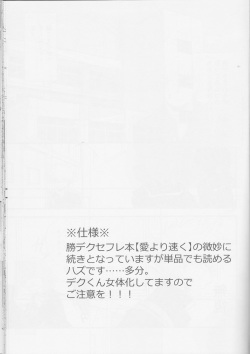 ※仕様※
勝デクセフレ本【愛より速く】の微妙に
続きとなっていますが単品でも読める
ハズです……多分。
デクくん女体化してますので
ご注意を！！！